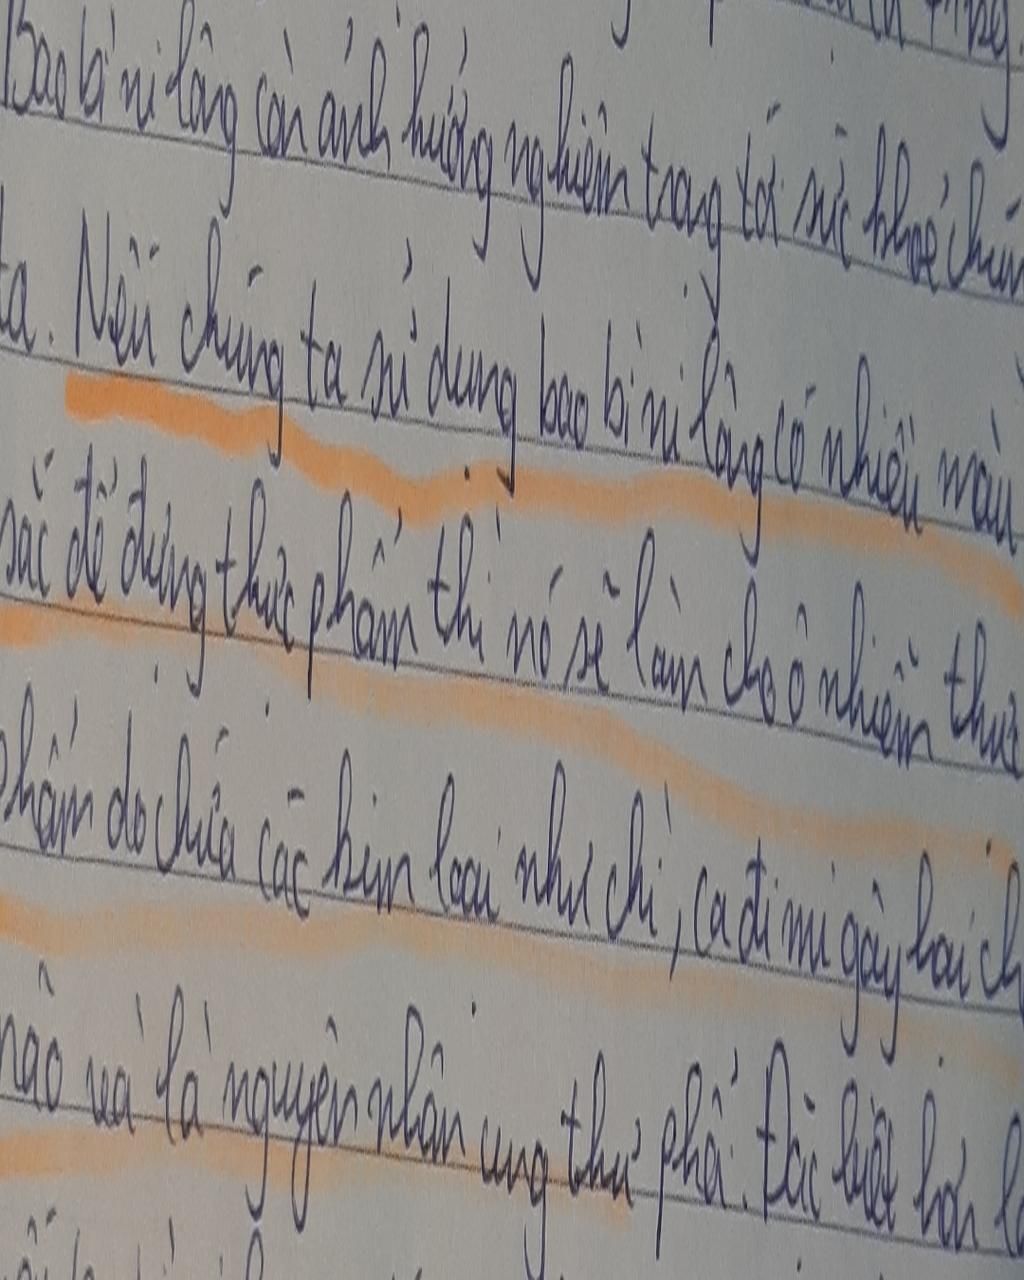 Bao bì ni lông còn ảnh hưởng nghiêm trọng tới sức khoẻ chún
ta. Nếu chúng ta sử dụng bao bì ni lông có nhiều màu
sắc để đựng thực phẩm thì nó sẽ làm cho ô nhiễm thực
phẩm do chứa các kim loại như chì, ca đi mi gây hại ch
não và là nguyên nhân ung thư phổi. Đặc biệt hơn là